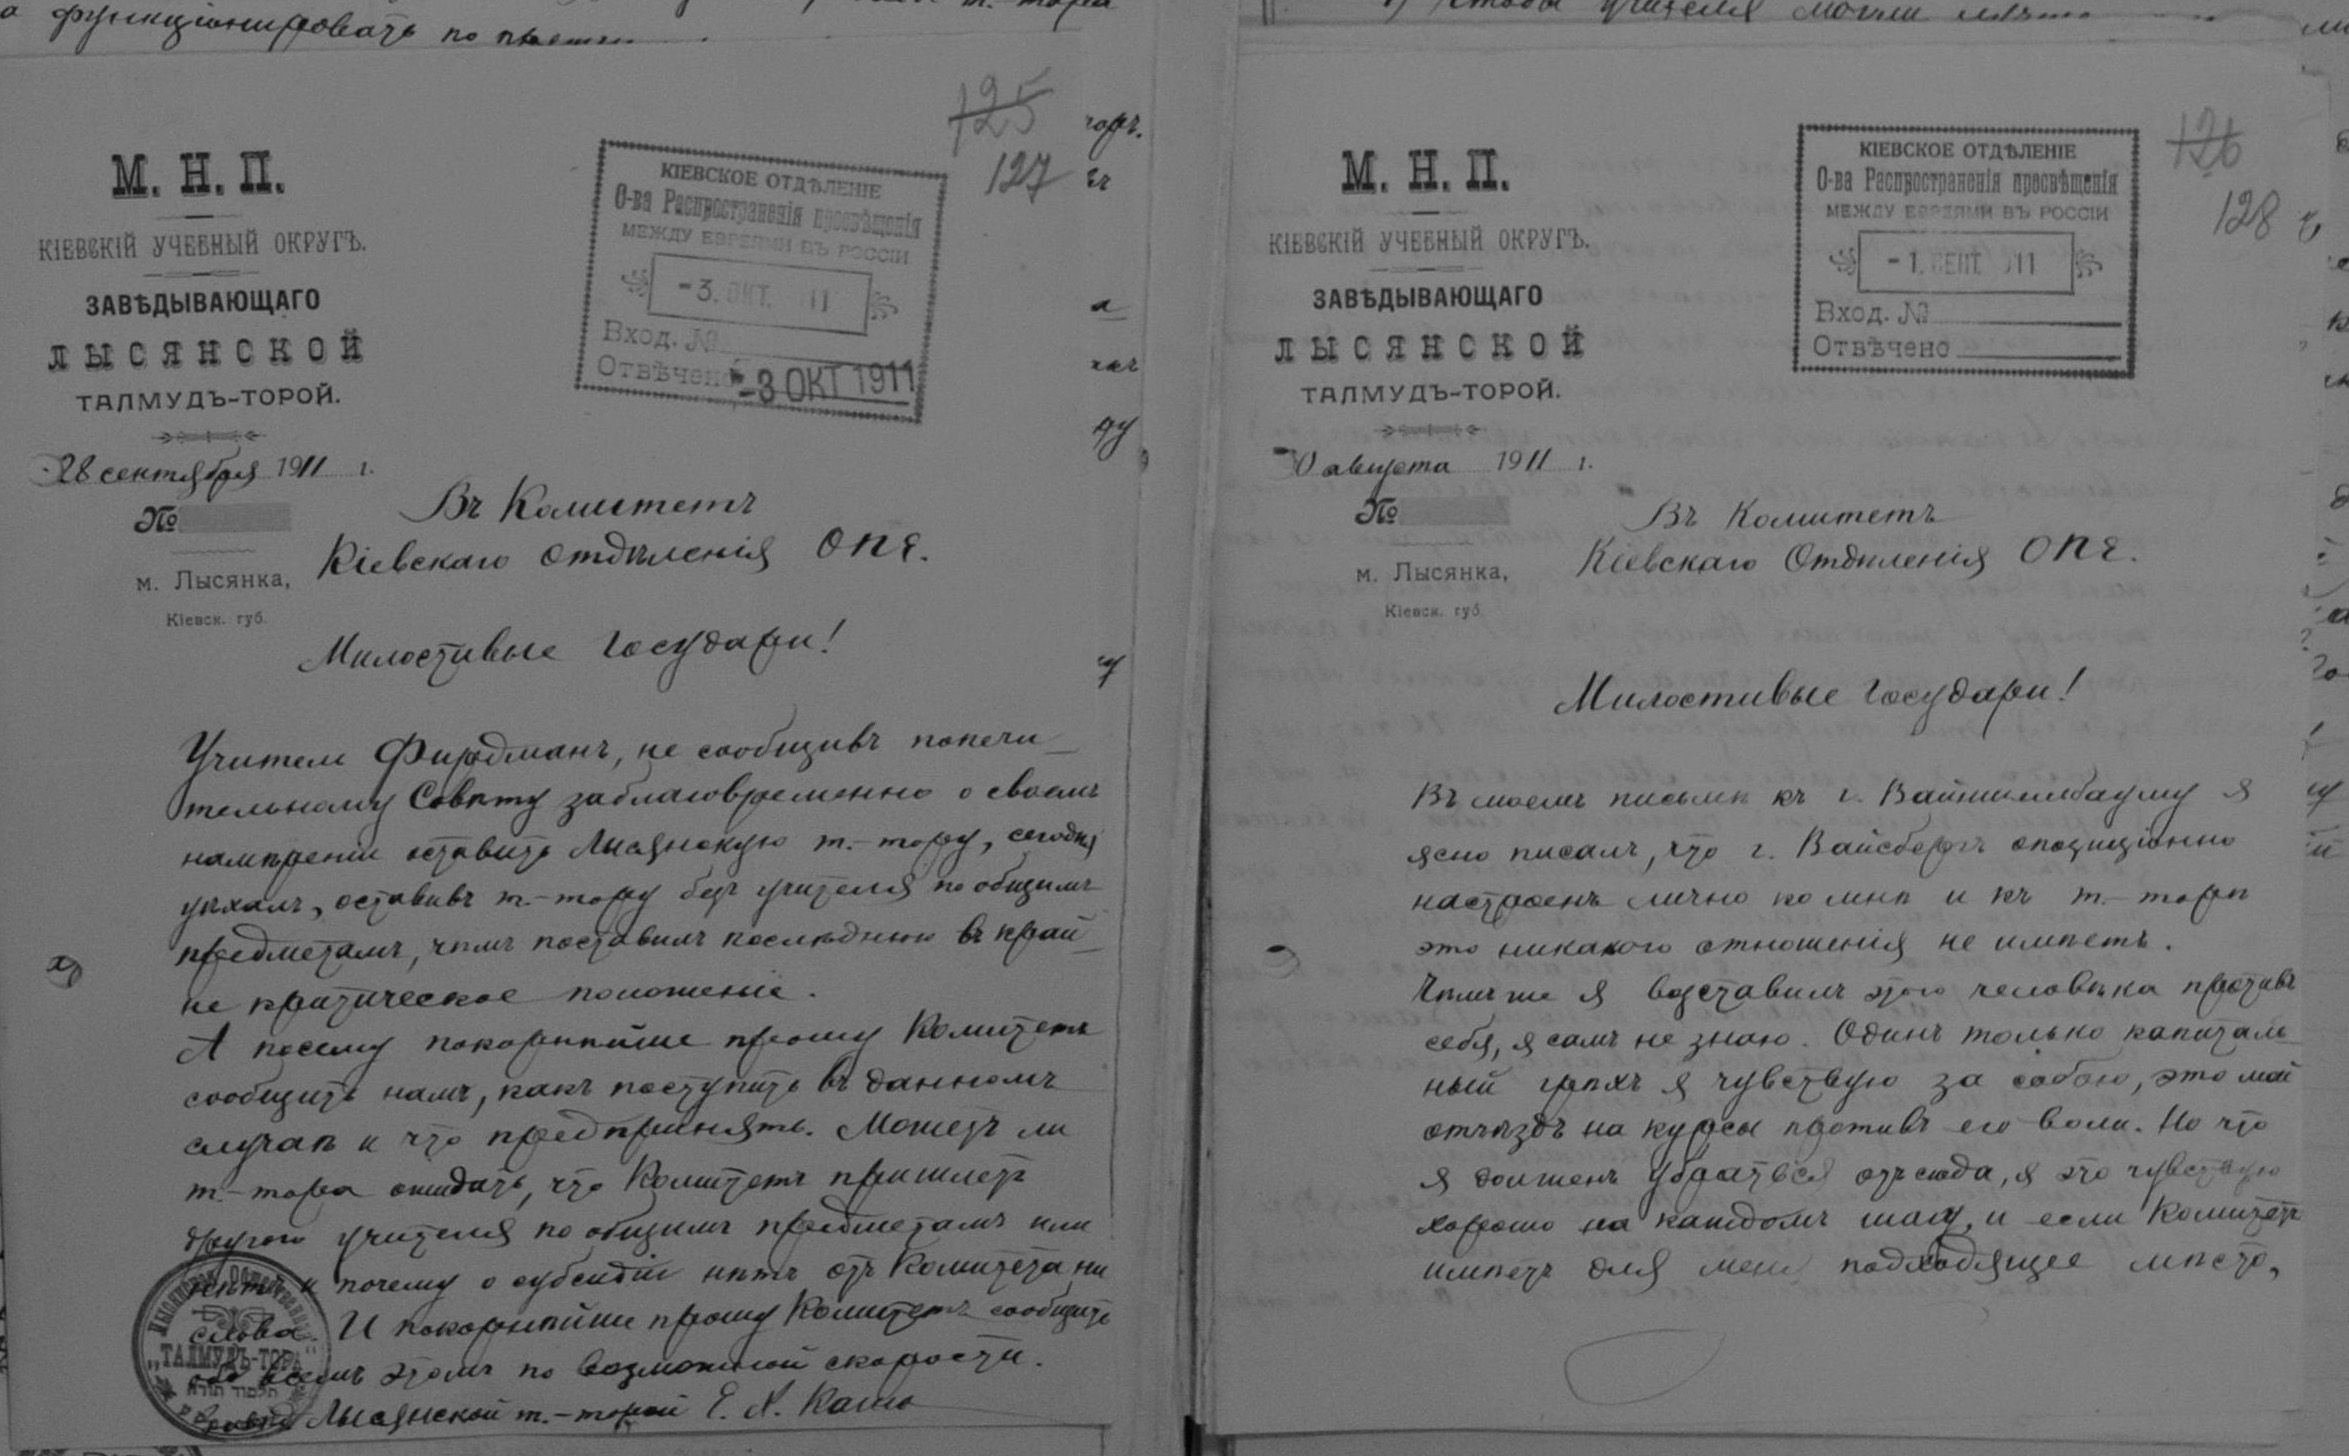 функціонировать по
125
127
М. Н. П.
КІЕВСКІЙ УЧЕБНЫЙ ОКРУГЪ.
ЗАВѢДЫВАЮЩАГО
ЛЫСЯНСКОЙ
ТАЛМУДЪ-ТОРОЙ.
28 сентября 1911 г.
№
м. Лысянка,
Кіевск. губ.
КІЕВСКОЕ ОТДѢЛЕНІЕ
О-ва Распространенія просвѣщенія
МЕЖДУ ЕВРЕЯМИ ВЪ РОССІИ
-3. ОКТ. 11
Вход. №
Отвѣчено -3 ОКТ 1911
Въ Комитетъ
Кіевскаго Отдѣленія ОПЕ.
Милостивые Государи!
Учитель Фирдманъ, не сообщивъ попечи-
тельному Совѣту заблаговременно о своемъ
намѣреніи оставить Лысянскую т.-тору, сегодня
уѣхалъ, оставивъ т.-тору безъ учителя по общимъ
предметамъ, чѣмъ поставилъ послѣднюю въ край-
не критическое положеніе.
А посему покорнѣйше прошу Комитетъ
сообщить намъ, какъ поступить въ данномъ
случаѣ и что предпринять. Можетъ ли
т.-тора ожидать, что Комитетъ пришлетъ
другого учителя по общимъ предметамъ или
нѣтъ и почему о субсидіи нѣтъ отъ Комитета ни
слова. И покорнѣйше прошу Комитетъ сообщить
обо всемъ этомъ по возможной скорости.
Лысянской т.-торой Е. Х.
„ТАЛМУДЪ-ТОРА"
תלמוד תורה
126
128
М. Н. П.
КІЕВСКІЙ УЧЕБНЫЙ ОКРУГЪ.
ЗАВѢДЫВАЮЩАГО
ЛЫСЯНСКОЙ
ТАЛМУДЪ-ТОРОЙ.
августа 1911 г.
№
м. Лысянка,
Кіевск. губ.
КІЕВСКОЕ ОТДѢЛЕНІЕ
О-ва Распространенія просвѣщенія
МЕЖДУ ЕВРЕЯМИ ВЪ РОССІИ
-1. СЕНТ. 911
Вход. №
Отвѣчено
Въ Комитетъ
Кіевскаго Отдѣленія ОПЕ.
Милостивые Государи!
Въ моемъ письмѣ къ г. Вайншельбауму я
ясно писалъ, что г. Вайсбергъ опозиціонно
настроенъ лично ко мнѣ и къ т.-торѣ
это никакого отношенія не имѣетъ.
Чѣмъ же я возставилъ этого человѣка противъ
себя, я самъ не знаю. Одинъ только капиталь-
ный грѣхъ я чувствую за собою, это мой
отъѣздъ на курсы противъ его воли. Но что
я долженъ убраться отъ сюда, я это чувствую
хорошо на каждомъ шагу, и если Комитетъ
имѣетъ для меня подходящее мѣсто,